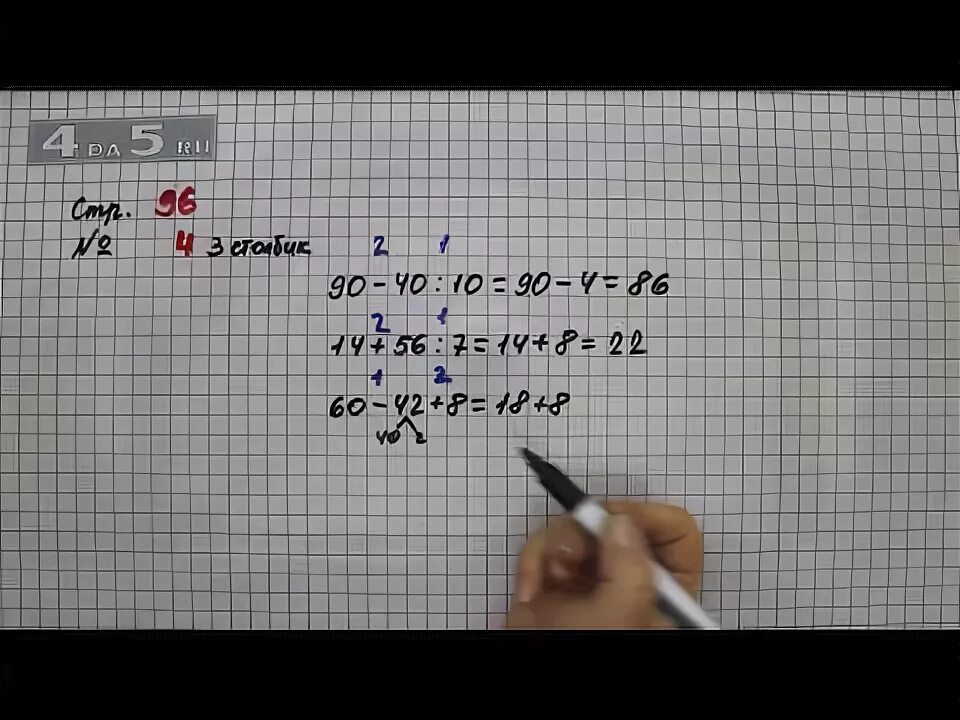 4 DA 5 RU
Стр. 96
№ 4 3 столбик
2 1
90 - 40 : 10 = 90 - 4 = 86
2 1
14 + 56 : 7 = 14 + 8 = 22
1 2
60 - 42 + 8 = 18 + 8
40 2